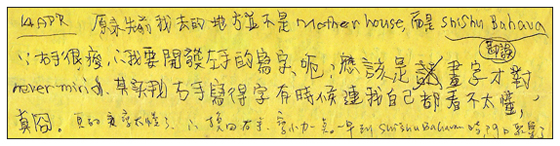 14 APR 原來先前我去的地方並不是 Mother house, 而是 Shishu Bahava
∵右手很痠, ∴我要開發左手的寫字, 呃, 應該是 畫字才對
never mind. 其實我右手寫得字有時候連我自己都看不太懂,
真囧。真的 太慢 ∴換回右手, 早到 Shishu Bahava 時